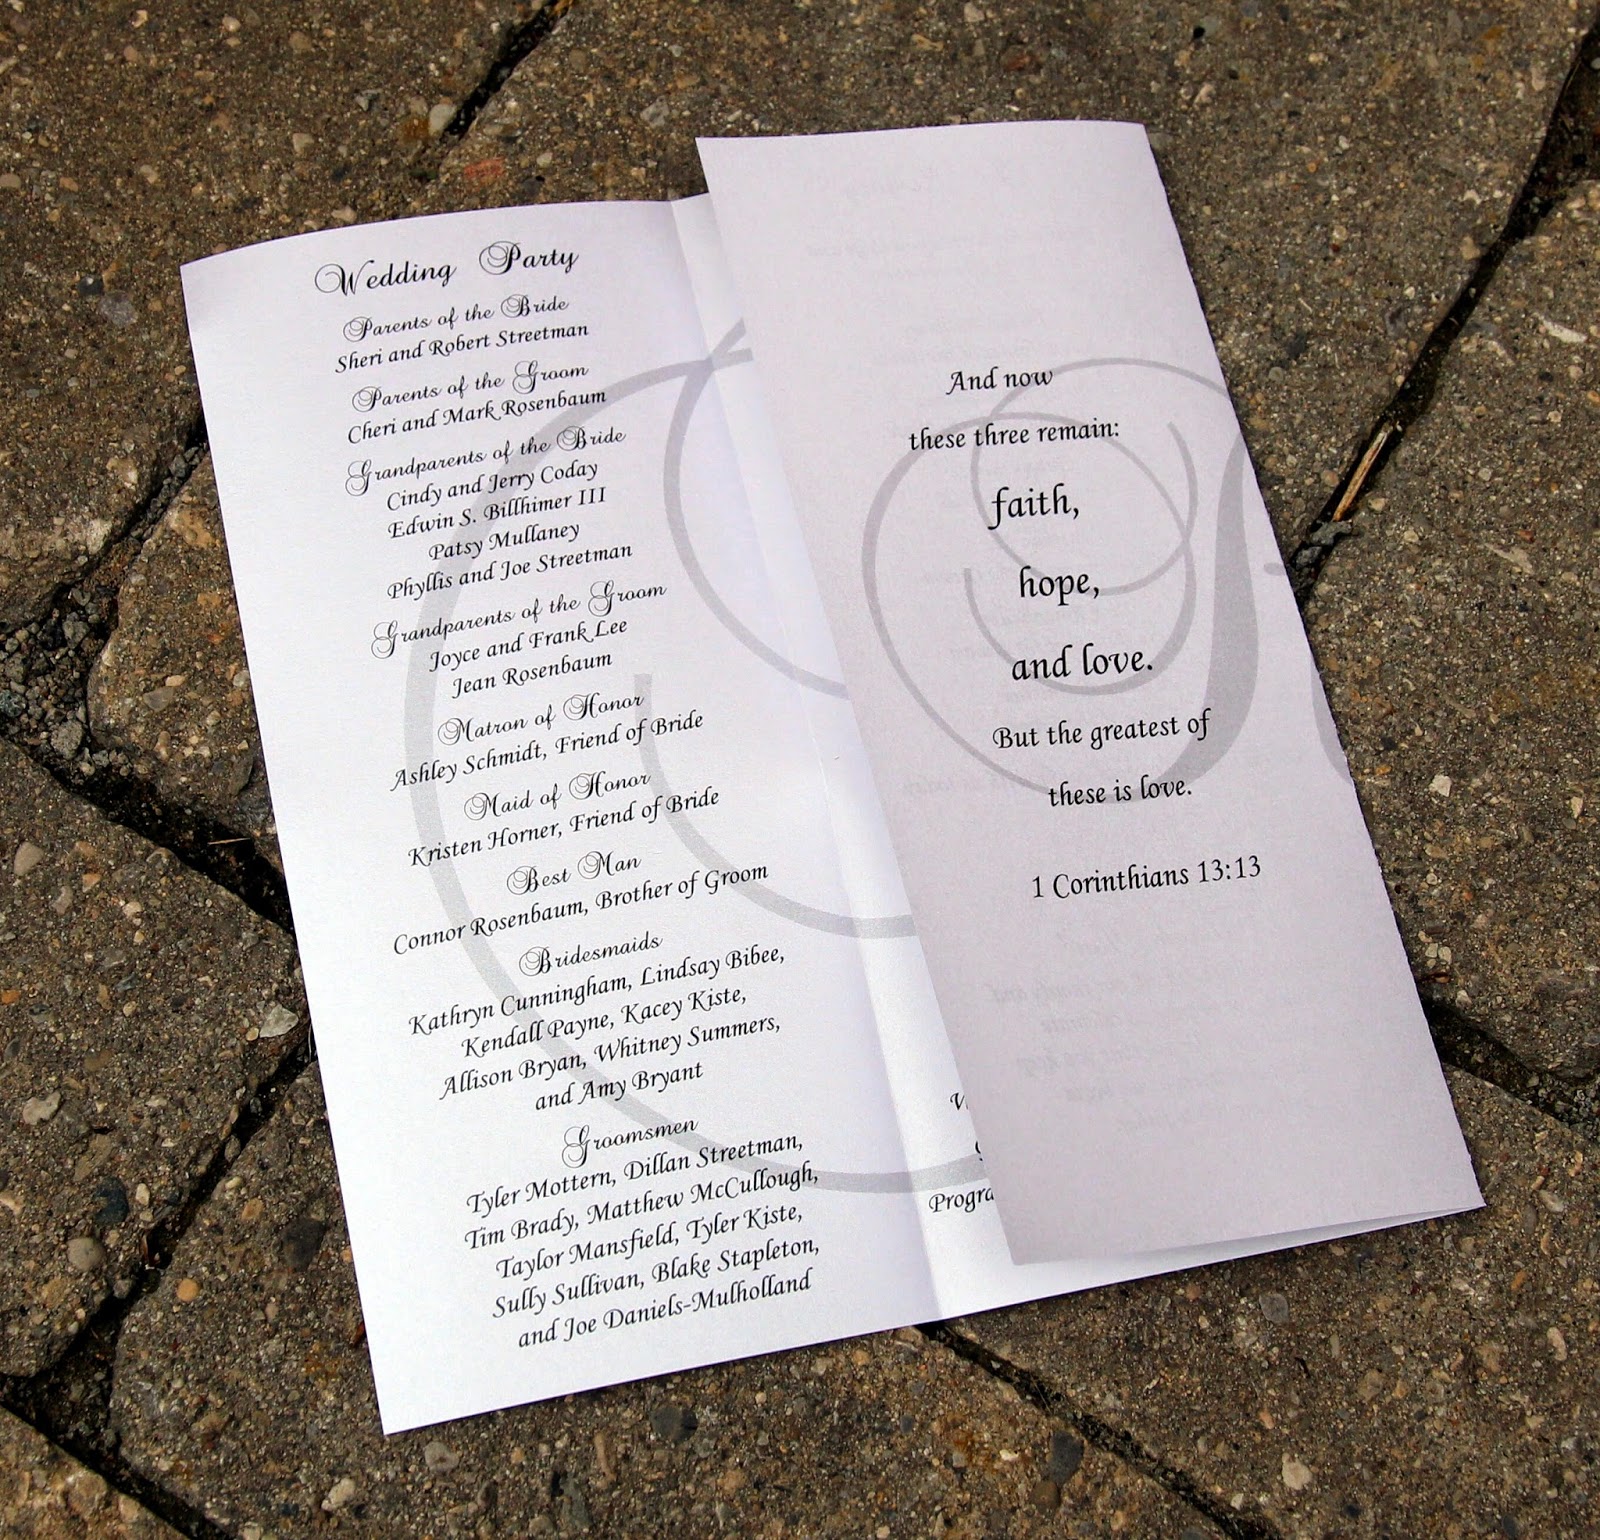 Wedding Party
Parents of the Bride
Sheri and Robert Streetman
Parents of the Groom
Cheri and Mark Rosenbaum
Grandparents of the Bride
Cindy and Jerry Coday
Edwin S. Billhimer III
Patsy Mullaney
Phyllis and Joe Streetman
Grandparents of the Groom
Joyce and Frank Lee
Jean Rosenbaum
Matron of Honor
Ashley Schmidt, Friend of Bride
Maid of Honor
Kristen Horner, Friend of Bride
Best Man
Connor Rosenbaum, Brother of Groom
Bridesmaids
Kathryn Cunningham, Lindsay Bibee,
Kendall Payne, Kacey Kiste,
Allison Bryan, Whitney Summers,
and Amy Bryant
Groomsmen
Tyler Mottern, Dillan Streetman,
Tim Brady, Matthew McCullough,
Taylor Mansfield, Tyler Kiste,
Sully Sullivan, Blake Stapleton,
and Joe Daniels-Mulholland
Progra
And now
these three remain:
faith,
hope,
and love.
But the greatest of
these is love.
1 Corinthians 13:13